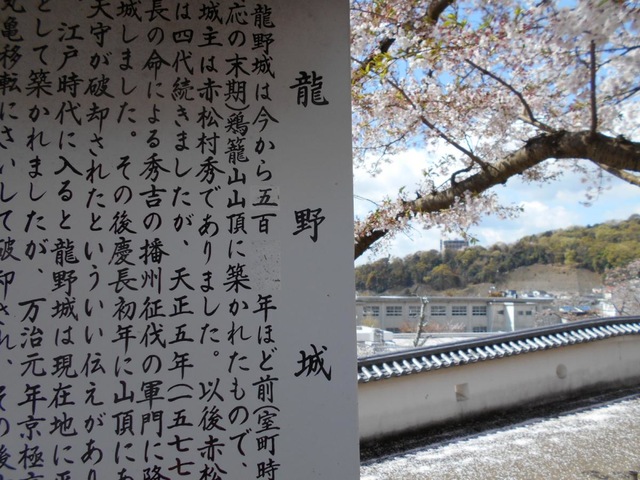 龍野城
龍野城は今から五百 年ほど前(室町時
応の末期)鶏籠山山頂に築かれたもので、
城主は赤松村秀でありました。以後赤松
は四代続きましたが、天正五年(一五七七
長の命による秀吉の播州征伐の軍門に降
城しました。その後慶長初年に山頂にあ
天守が破却されたといういい伝えがあり
、江戸時代に入ると龍野城は現在地に平
として築かれましたが、万治元年京極
丸亀移転にさいして破却され、その後